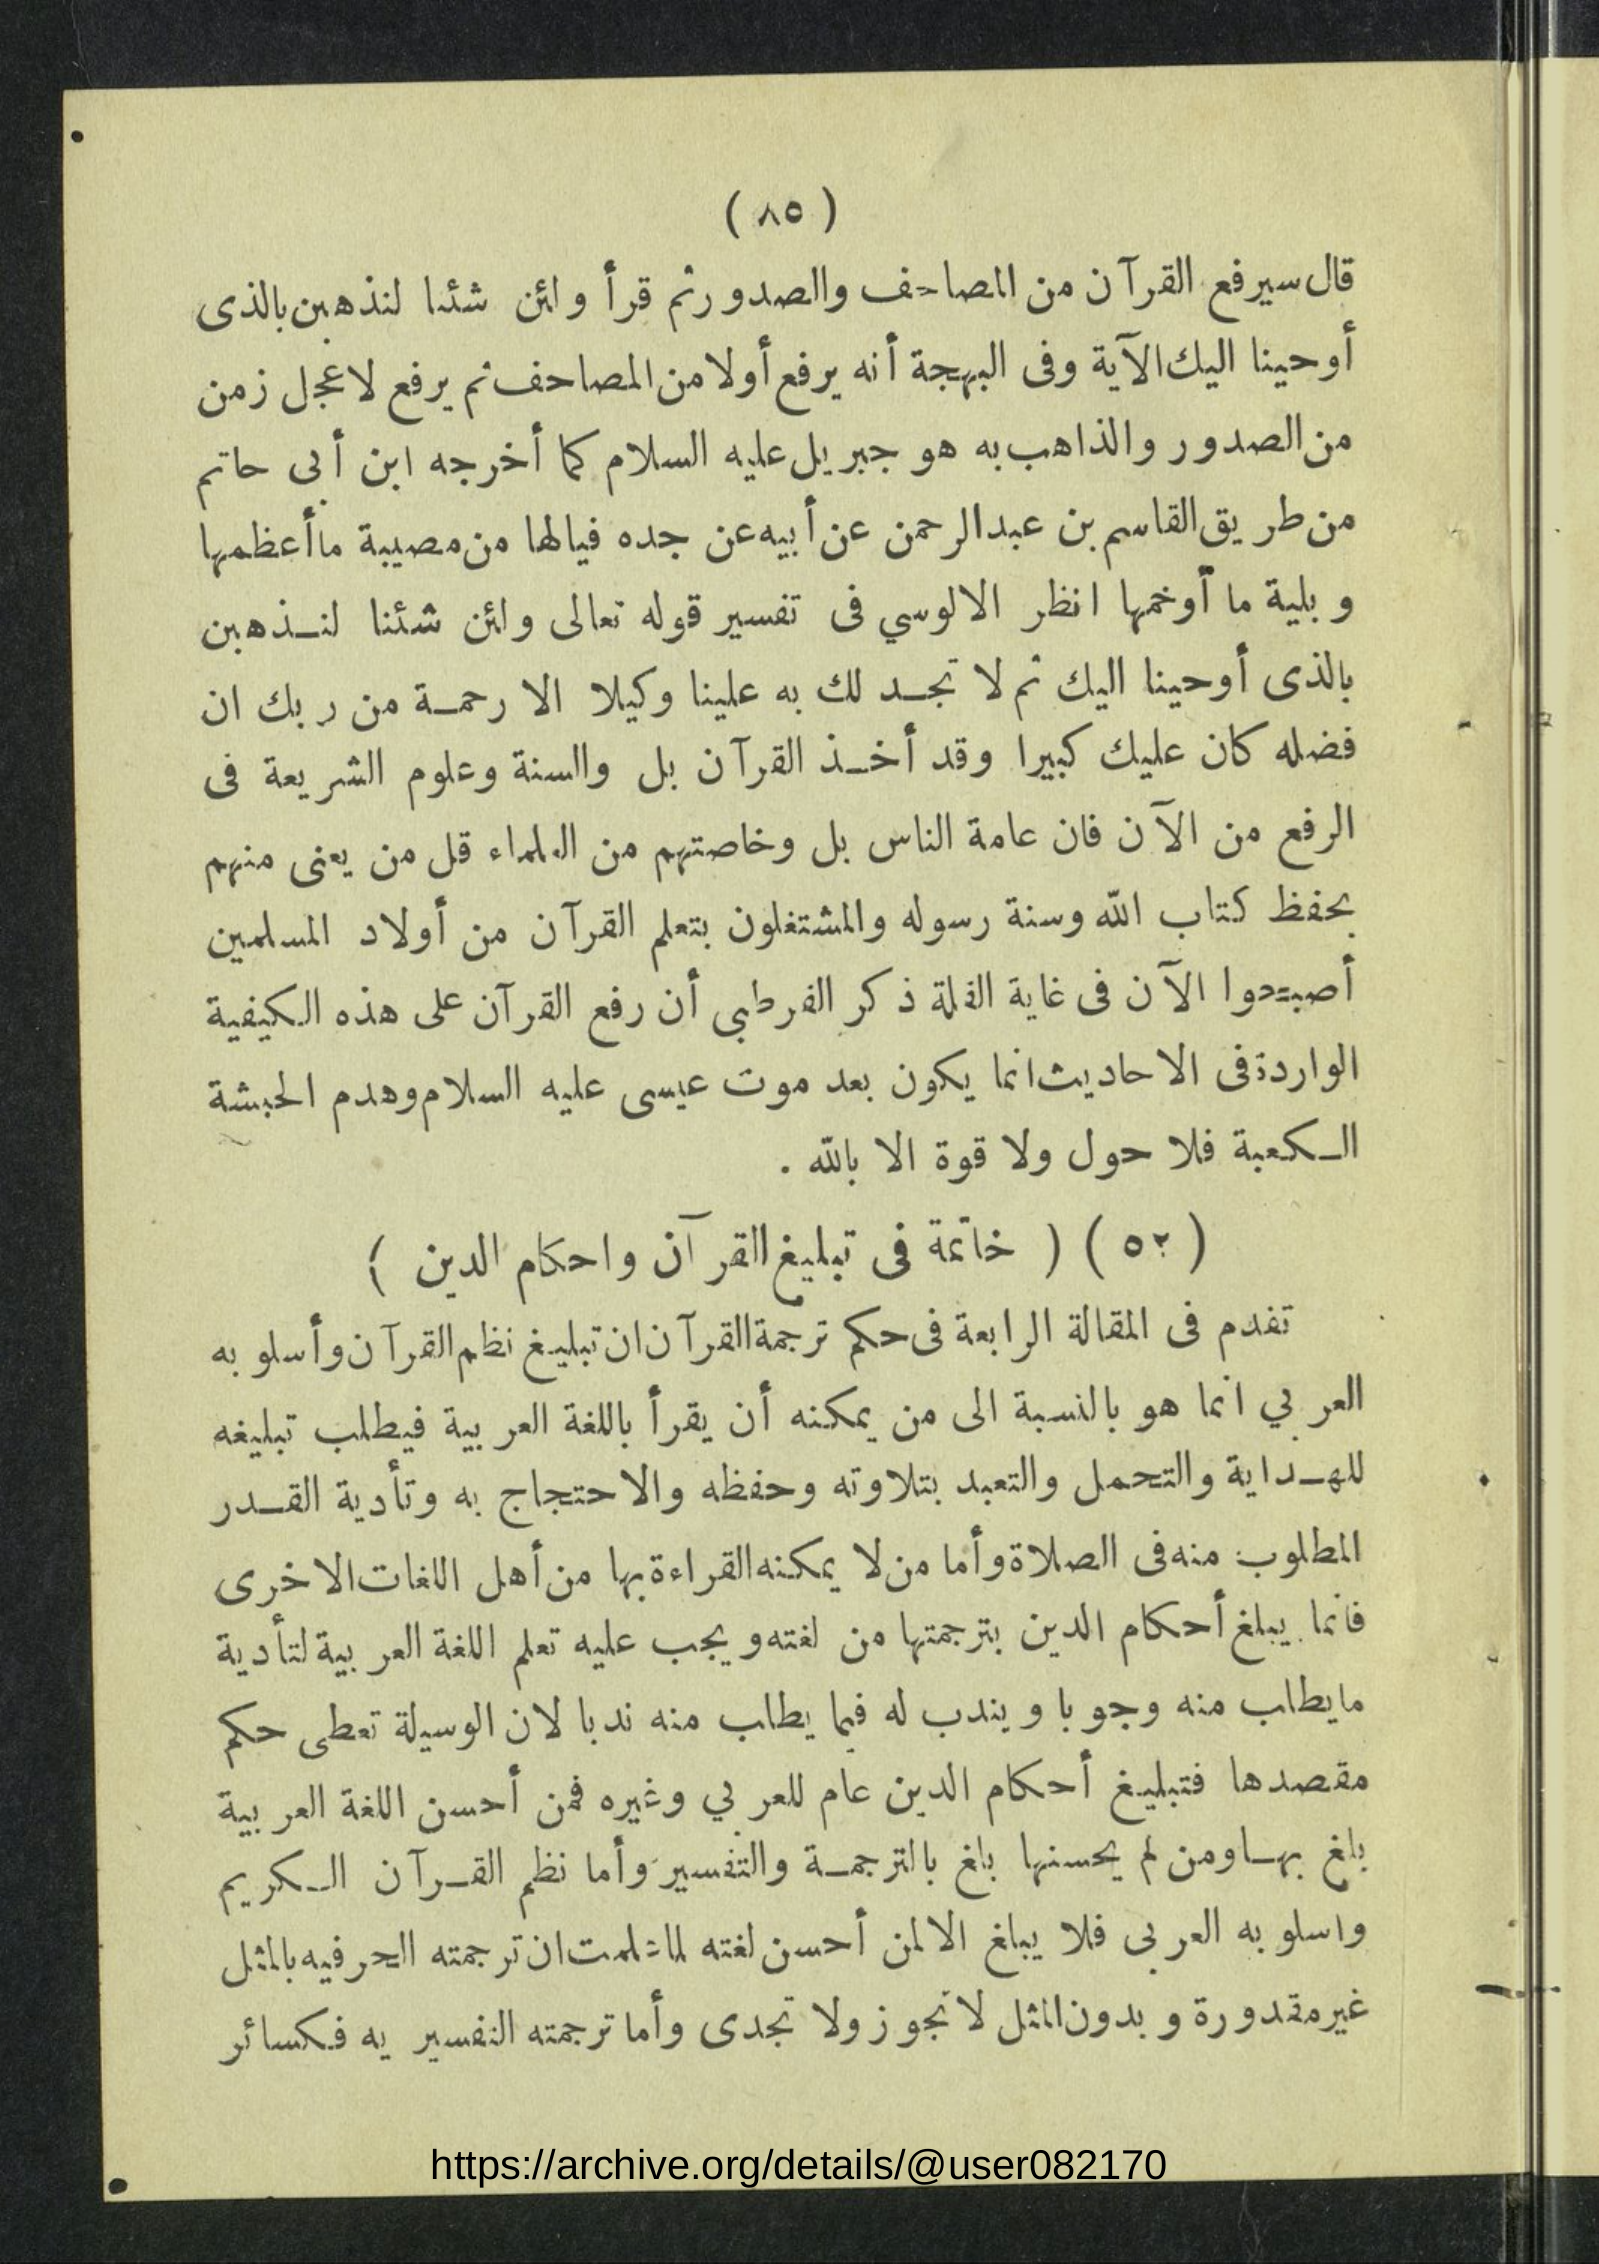 ( ٨٥ )
قال سيرفع القرآن من المصاحف والصدور ثم قرأ ولئن شئنا لنذهبن بالذى
أوحينا اليك الآية وفى البهجة أنه يرفع أولا من المصاحف ثم يرفع لاعجل زمن
من الصدور والذاهب به هو جبريل عليه السلام كما أخرجه ابن أبى حاتم
من طريق القاسم بن عبد الرحمن عن أبيه عن جده فيالها من مصيبة ما أعظمها
وبلية ما أوخمها انظر الالوسي فى تفسير قوله تعالى ولئن شئنا لنذهبن
بالذى أوحينا اليك ثم لا تجد لك به علينا وكيلا الا رحمة من ربك ان
فضله كان عليك كبيرا وقد أخذ القرآن بل والسنة وعلوم الشريعة فى
الرفع من الآن فان عامة الناس بل وخاصتهم من العلماء قل من يعنى منهم
بحفظ كتاب الله وسنة رسوله والمشتغلون بتعلم القرآن من أولاد المسلمين
أصبحوا الآن فى غاية القلة ذكر القرطبى أن رفع القرآن على هذه الكيفية
الواردة فى الاحاديث انما يكون بعد موت عيسى عليه السلام وهدم الحبشة
الكعبة فلا حول ولا قوة الا بالله .
( ٥٢ ) ( خاتمة فى تبليغ القرآن واحكام الدين )
تقدم فى المقالة الرابعة فى حكم ترجمة القرآن ان تبليغ نظم القرآن وأسلوبه
العربي انما هو بالنسبة الى من يمكنه أن يقرأ باللغة العربية فيطلب تبليغه
للهداية والتحمل والتعبد بتلاوته وحفظه والاحتجاج به وتأدية القدر
المطلوب منه فى الصلاة وأما من لا يمكنه القراءة بها من أهل اللغات الاخرى
فانما يبلغ أحكام الدين بترجمتها من لغته ويجب عليه تعلم اللغة العربية لتأدية
ما يطلب منه وجوبا ويندب له فيما يطلب منه ندبا لان الوسيلة تعطى حكم
مقصدها فتبليغ أحكام الدين عام للعربي وغيره فمن أحسن اللغة العربية
بلغ بها ومن لم يحسنها بلغ بالترجمة والتفسير وأما نظم القرآن الكريم
واسلوبه العربى فلا يبلغ الا لمن أحسن لغته لما علمت ان ترجمته الحرفيه بالمثل
غير مقدورة وبدون المثل لا تجوز ولا تجدى وأما ترجمته التفسيريه فكسائر
https://archive.org/details/@user082170